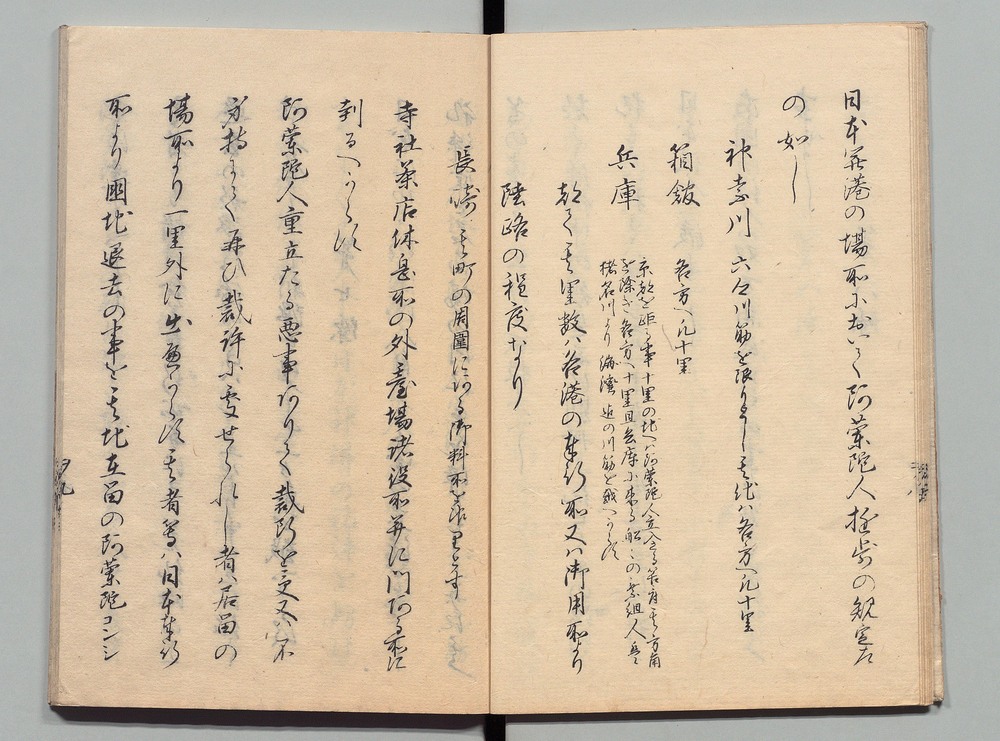 日本開港の場所において阿蘭陀人遊歩の規定左
の如し
神奈川 六合川筋を限りとし其他ハ各方へ凡十里
箱館 各方へ凡十里
兵庫 京都を距る事十里の地へハ阿蘭陀人立入さる筈有其方角
を除き各方へ十里且兵庫に来る船々の乗組人ハ
猪名川より海湾迄の川筋を越へからす
都て其里数ハ各港の奉行所又ハ御用所より
陸路の程度なり
長崎 其町の周囲にある御料所を限りとす
寺社茶店休息所の外臺場諸役所并に門ある所に
到るへからす
阿蘭陀人重立たる悪事ありて裁断を受又ハ不
身持にて再ひ裁許に処せられし者ハ居留の
場所より一里外に出へからす其者等ハ日本奉行
所より国地退去の事を其地在留の阿蘭陀コンシ